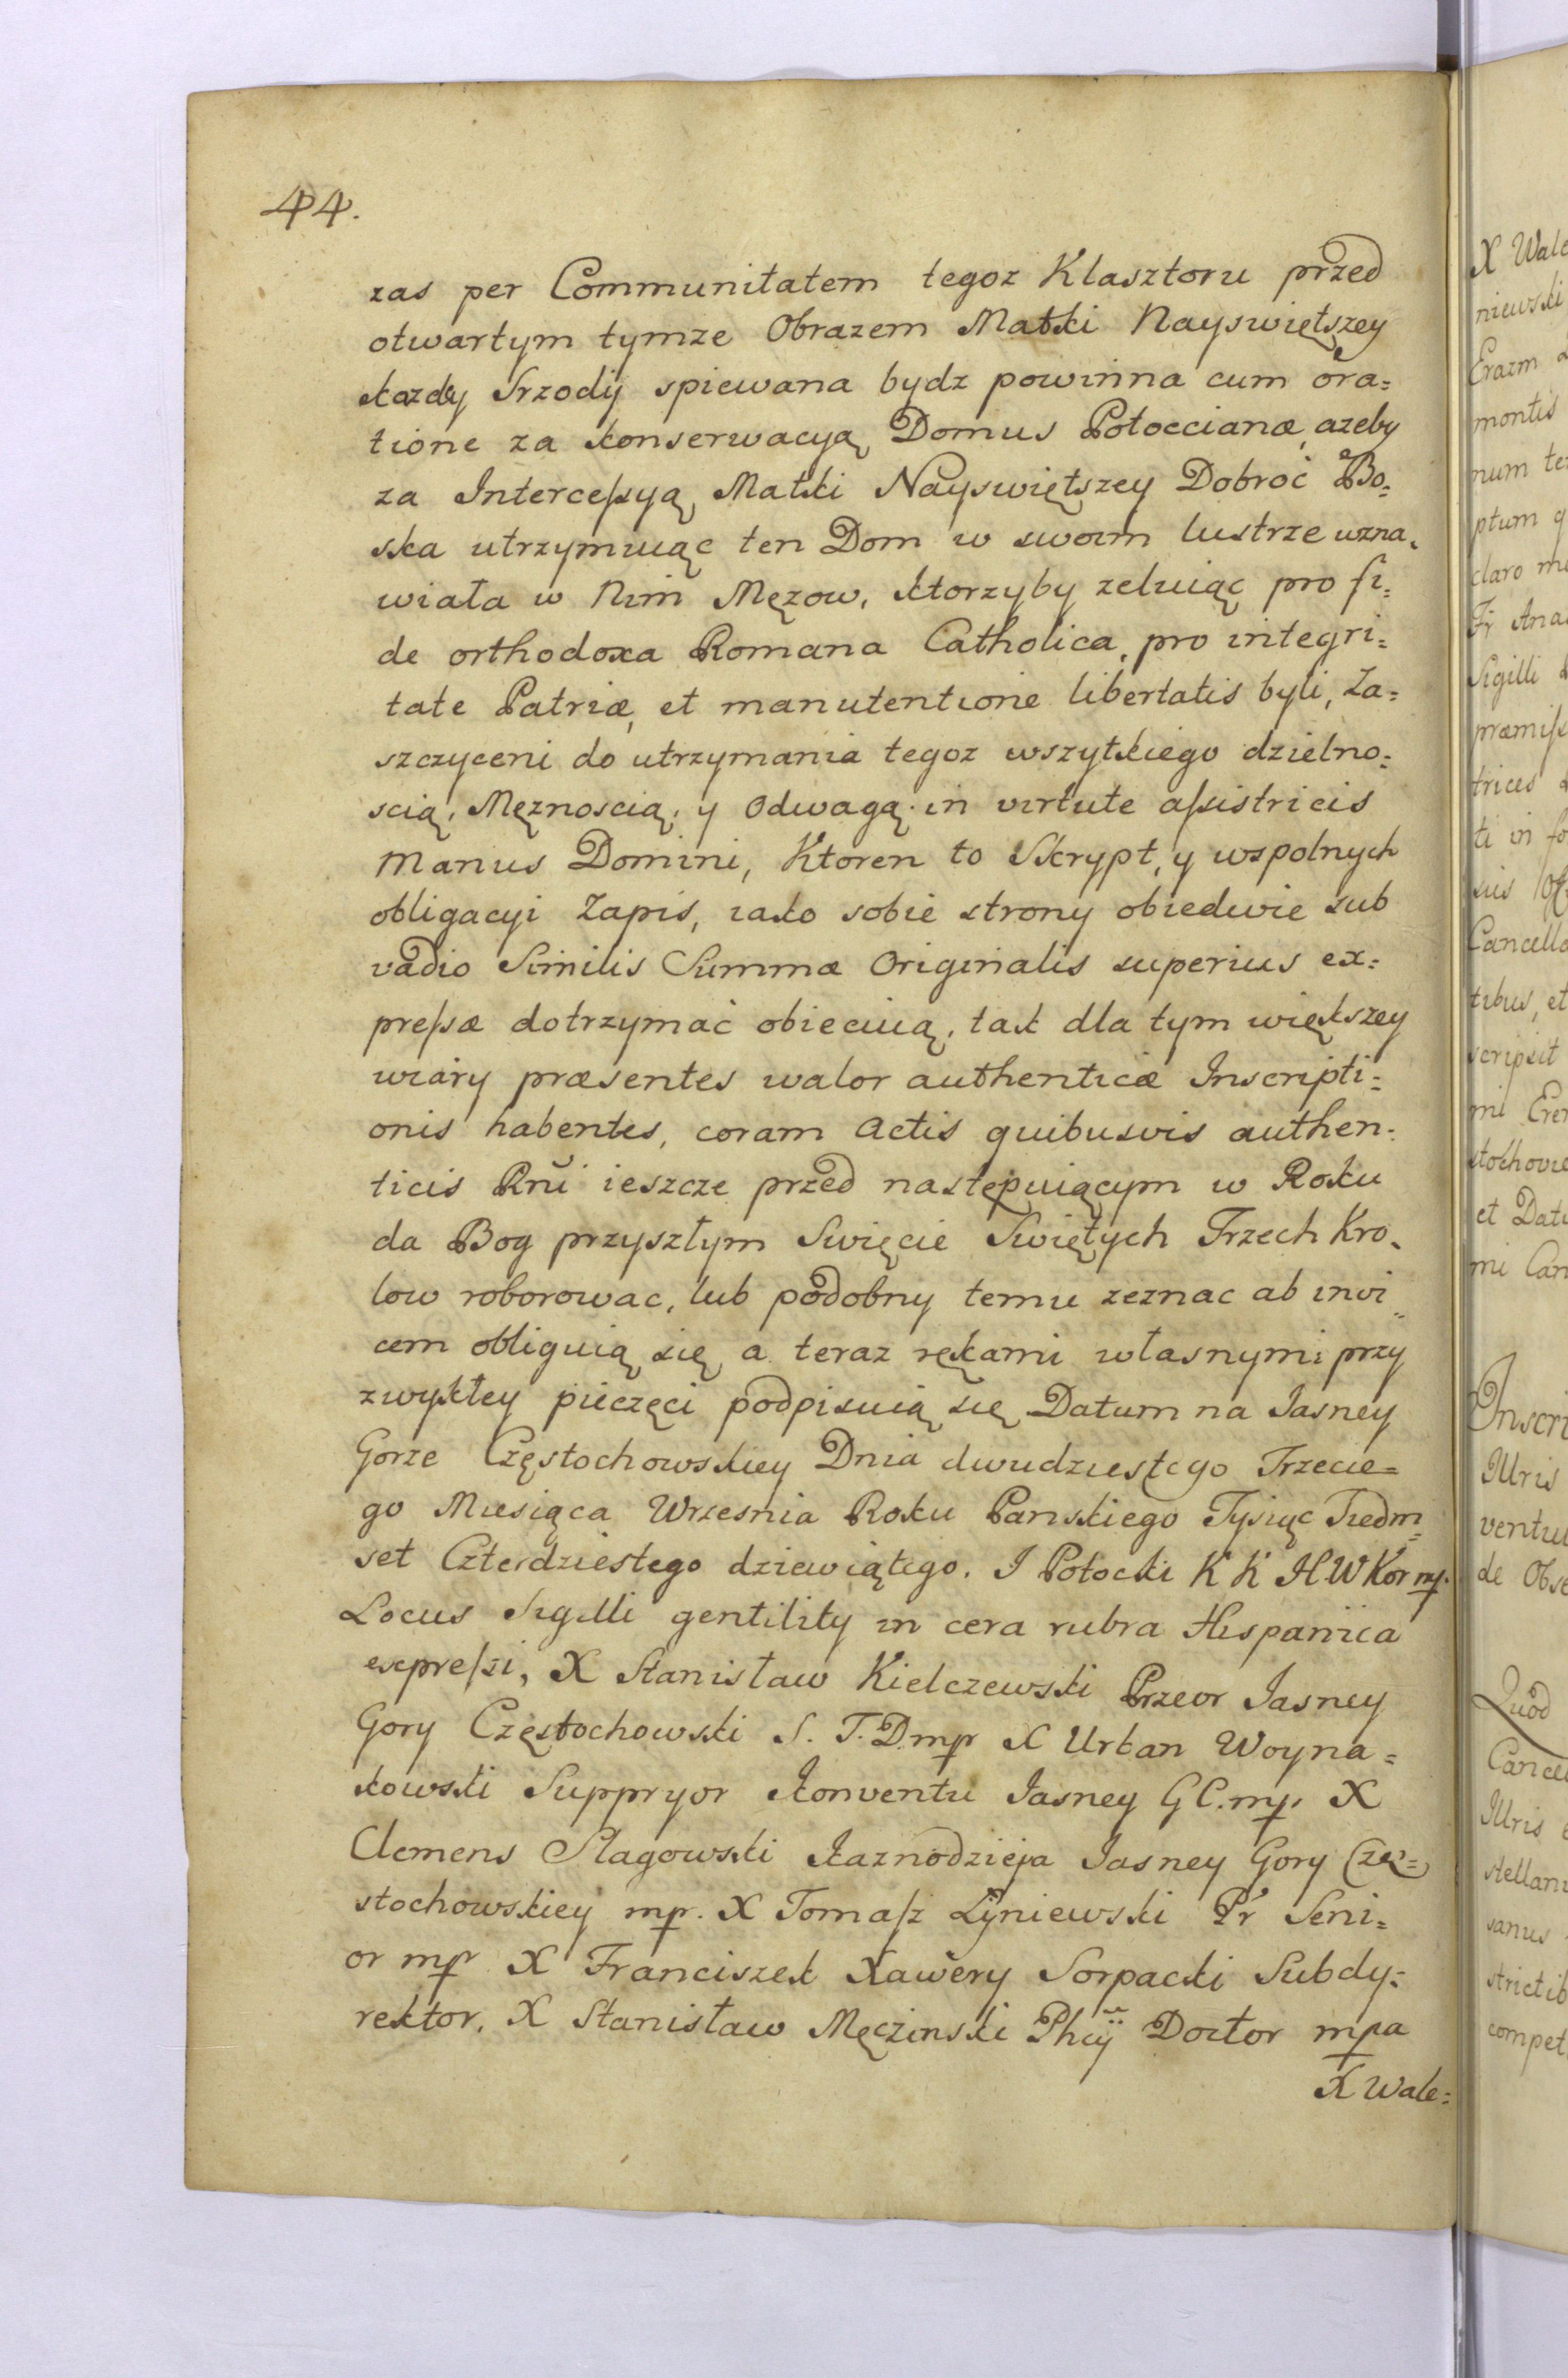 44.
zas per Communitatem tegoz Klasztoru przed
otwartym tymze Obrazem Matki Nayswiętszey
kazdey Srzody spiewana bydz powinna cum ora=
tione za konserwacyą Domus Potoccianæ, azeby
za Interceſsyą Matki Nayswiętszey Dobroć Bo=
ska utrzymuiąc ten Dom w swoim lustrze wzna=
wiała w Nim Męzow, ktorzyby zeluiąc pro fi=
de orthodoxa Romana Catholica, pro integri=
tate Patriæ, et manutentione libertatis byli, Za=
szczyceni do utrzymania tegoz wszytkiego dzielno=
scią, Męznoscią, y Odwagą in virtute aſsistricis
Manus Domini, Ktoren to Skrypt, y wspolnych
obligacyi Zapis, iako sobie strony obiedwie sub
vadio Similis Summæ Originalis superius ex=
preſsæ dotrzymać obiecuią, tak dla tym większey
wiary præsentes walor authenticæ Inscripti=
onis habentes, coram Actis quibusvis authen=
ticis Rni ieszcze przed następuiącym w Roku
da Bog przyszłym Swięcie Swiętych Trzech Kro=
low roborowac, lub podobny temu zeznac ab invi=
cem obliguią się a teraz rękami własnymi przy
zwykłey pieczęci podpisuią się Datum na Iasney
Gorze Częstochowskiey Dnia dwudziestego Trzecie=
go Miesiąca Wrzesnia Roku Panskiego Tysiąc Siedm=
set Czterdziestego dziewiątego. I Potocki K K H W Kor mp.
Locus Sigilli gentility in cera rubra Hispanica
expreſsi, X Stanisław Kielczewski Przeor Iasney
Gory Częstochowski S. T. D. mp X Urban Woyna=
kowski Suppryor Konventu Iasney G C. mp. X
Clemens Slagowski Kaznodzieja Iasney Gory Czę=
stochowskiey mp. X Tomaſz Lyniewski Pr Seni=
or mp X Franciszek Xawery Sorpacki Subdy=
rektor, X Stanisław Męczinski Phiÿ Doctor mpa
X Wale=
X Wale
niewski
Erazm
montis
num
ptum q
claro
Fr Ana
Sigilli
præmiſs
trices
ti in fo
suis
Cancella
tibus, et
scripsit
mi Erem
stochovie
et Datu
mi Can
Inscri
Illris
ventu
de Obse
Quod
Cancel
Illris
stellan
sanus
strictib
compet